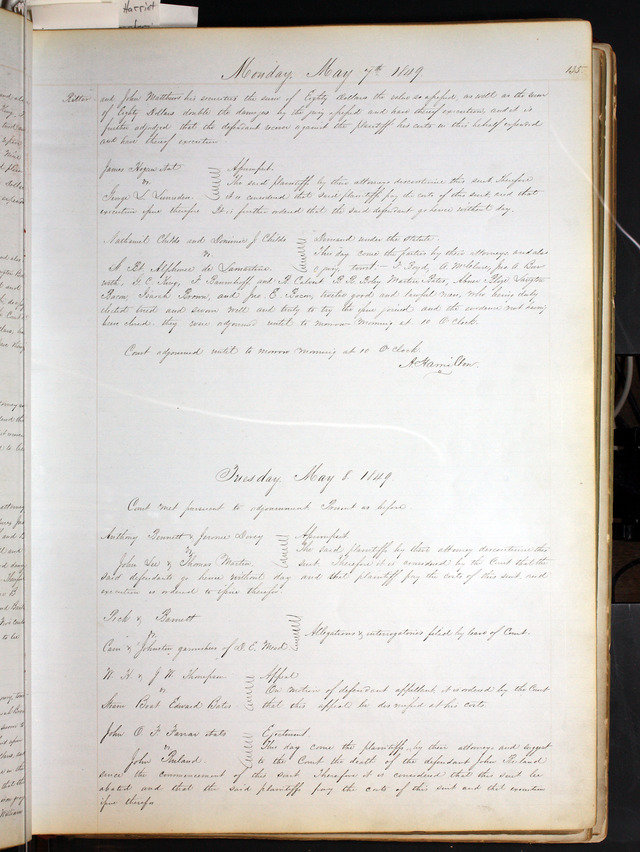 Harriet
Monday, May 7th 1849
135
Ritter
and John Matthews his securities the sum of Eighty dollars the value so assessed, as well as the sum
of Eighty dollars double the damages by the jury assessed and have thereof execution and it is
further adjudged that the defendant recover against the plaintiff his costs in this behalf expended
and have thereof execution
James et al
vs
George L. Lumsden
Assumpsit.
The said plaintiffs by their attorney discontinue this suit Therefore
it is considered that said plaintiffs pay the costs of this suit and that
execution issue therefor It is further ordered that the said defendant go hence without day.
Nathaniel Childs and J. Childs
vs
Alphonse de Lamartine.
Demand under the Statute.
This day come the parties by their attorneys and also
a jury towit F. Boyd, A. McClure, Jno A.
G. C. King, F. and R. B. R. Martin Bates, Abner
Bacon, Brown, and Geo. E. Bacon, twelve good and lawful men, who being duly
elected tried and sworn well and truly to try the issue joined and the evidence not having
been closed, they were adjourned until to morrow morning at 10 O'Clock.
Court adjourned until to morrow morning at 10 O'Clock
A. Hamilton.
Tuesday, May 8. 1849.
Court met pursuant to adjournment Present as before
Anthony Bennett & Jerome
vs
John Lee & Thomas Martin.
Assumpsit
The said plaintiffs by their attorney discontinue this
suit. Therefore it is considered by the Court that the
said defendants go hence without day and that plaintiff pay the costs of this suit and
execution is ordered to issue therefor.
Peck & Barnett
vs
Cain & Johnston garnishees of D. E. Wood
Allegations & interrogatories filed by leave of Court.
W. H. & J. W. Thompson
vs
Steam Boat Edward Bates
Appeal
On motion of defendant appellant it is ordered by the Court
that this appeal be dismissed at his costs.
John O. F. Farrar et als
vs
John Ruland
Ejectment
This day come the plaintiffs, by their attorneys and suggest
to the Court the death of the defendant John Ruland
since the commencement of this suit Therefore it is considered that this suit be
abated and that the said plaintiffs pay the costs of this suit and that execution
issue therefor